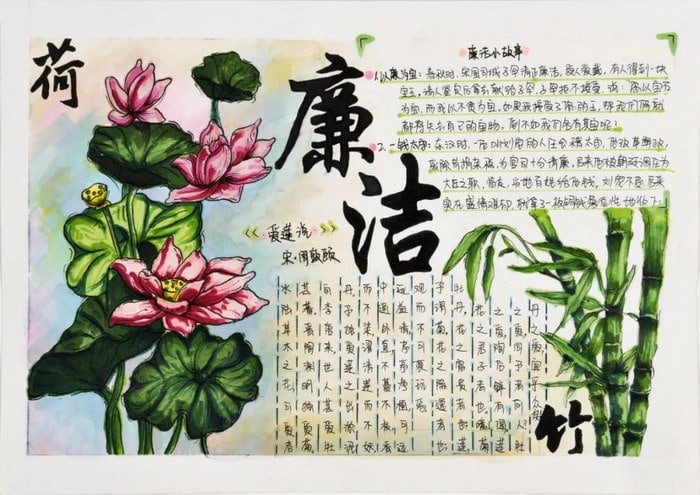 荷
廉洁
廉洁小故事
1.以廉为宝：春秋时，宋国司城子罕清正廉洁，受人爱戴。有人得到一块
宝玉，请人鉴定后拿去献给子罕，子罕拒不接受，说：您以宝石
为宝，而我以不贪为宝。如果我接受了您的玉，那我们俩就
都失去自己的宝物。倒不如我们各有其宝呢！
2.一钱太守：东汉时，一位叫刘宠的人任会稽太守，他改革弊政，
废除苛捐杂税，为官十分清廉。后来他被朝廷调任为
大臣之职，临走，当地百姓给他钱，刘宠不受 后来
实在盛情难却，就拿了一枚铜钱象征性地收下。
《爱莲说》
宋·周敦颐
水陆草木之花，可爱者
甚蕃。晋陶渊明独爱菊。
自李唐来，世人甚爱牡
丹。予独爱莲之出淤泥
而不染，濯清涟而不妖
中通外直，不蔓不枝
远益清，亭亭净植，可远
观而不可亵玩焉。
予谓菊，花之隐逸者也
牡丹，花之富贵者也；莲
花之君子者也。噫！菊
之爱，陶后鲜有闻。莲
之爱，同予者何人？牡
丹之爱，宜乎众矣
竹